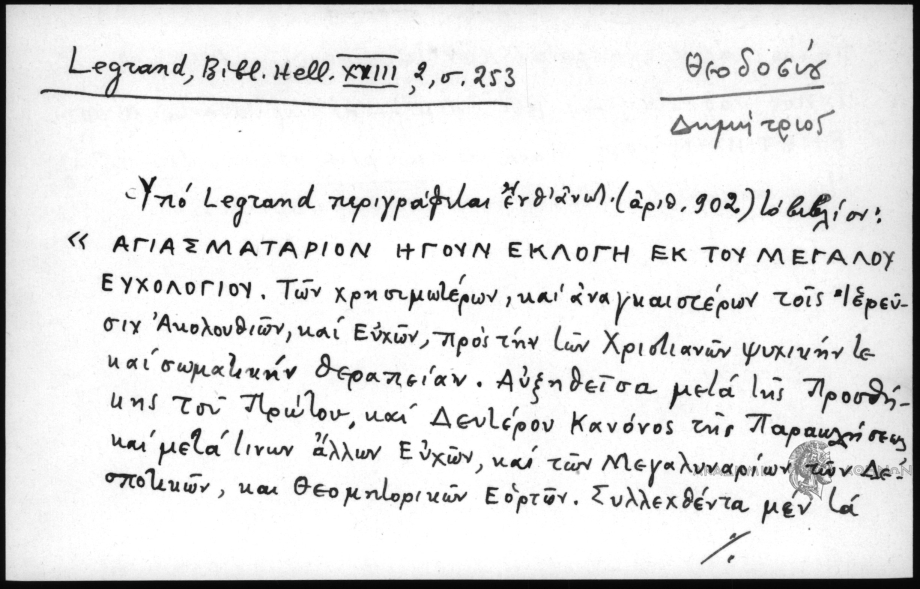 Legrand, Bibl. Hell. XXIII, 2, σ. 253
Θεοδοσίου
Δημήτριος
Ὑπό Legrand περιγράφεται (ἀριθ. 902) τό βιβλίον:
« ΑΓΙΑΣΜΑΤΑΡΙΟΝ ΗΓΟΥΝ ΕΚΛΟΓΗ ΕΚ ΤΟΥ ΜΕΓΑΛΟΥ
ΕΥΧΟΛΟΓΙΟΥ. Τῶν χρησιμωτέρων, καί ἀναγκαιοτέρων τοῖς Ἱερεῦ-
σιν Ἀκολουθιῶν, καί Εὐχῶν, πρός τήν τῶν Χριστιανῶν ψυχικήν τε
καί σωματικήν θεραπείαν. Αὐξηθεῖσα μετά τῆς Προσθή-
κης τοῦ Πρώτου, καί Δευτέρου Κανόνος τῆς Παρακλήσεως
καί μετά τινων ἄλλων Εὐχῶν, καί τῶν Μεγαλυναρίων τῶν Δε-
σποτικῶν, και Θεομητορικῶν Εορτῶν. Συλλεχθέντα μέν τά
./.